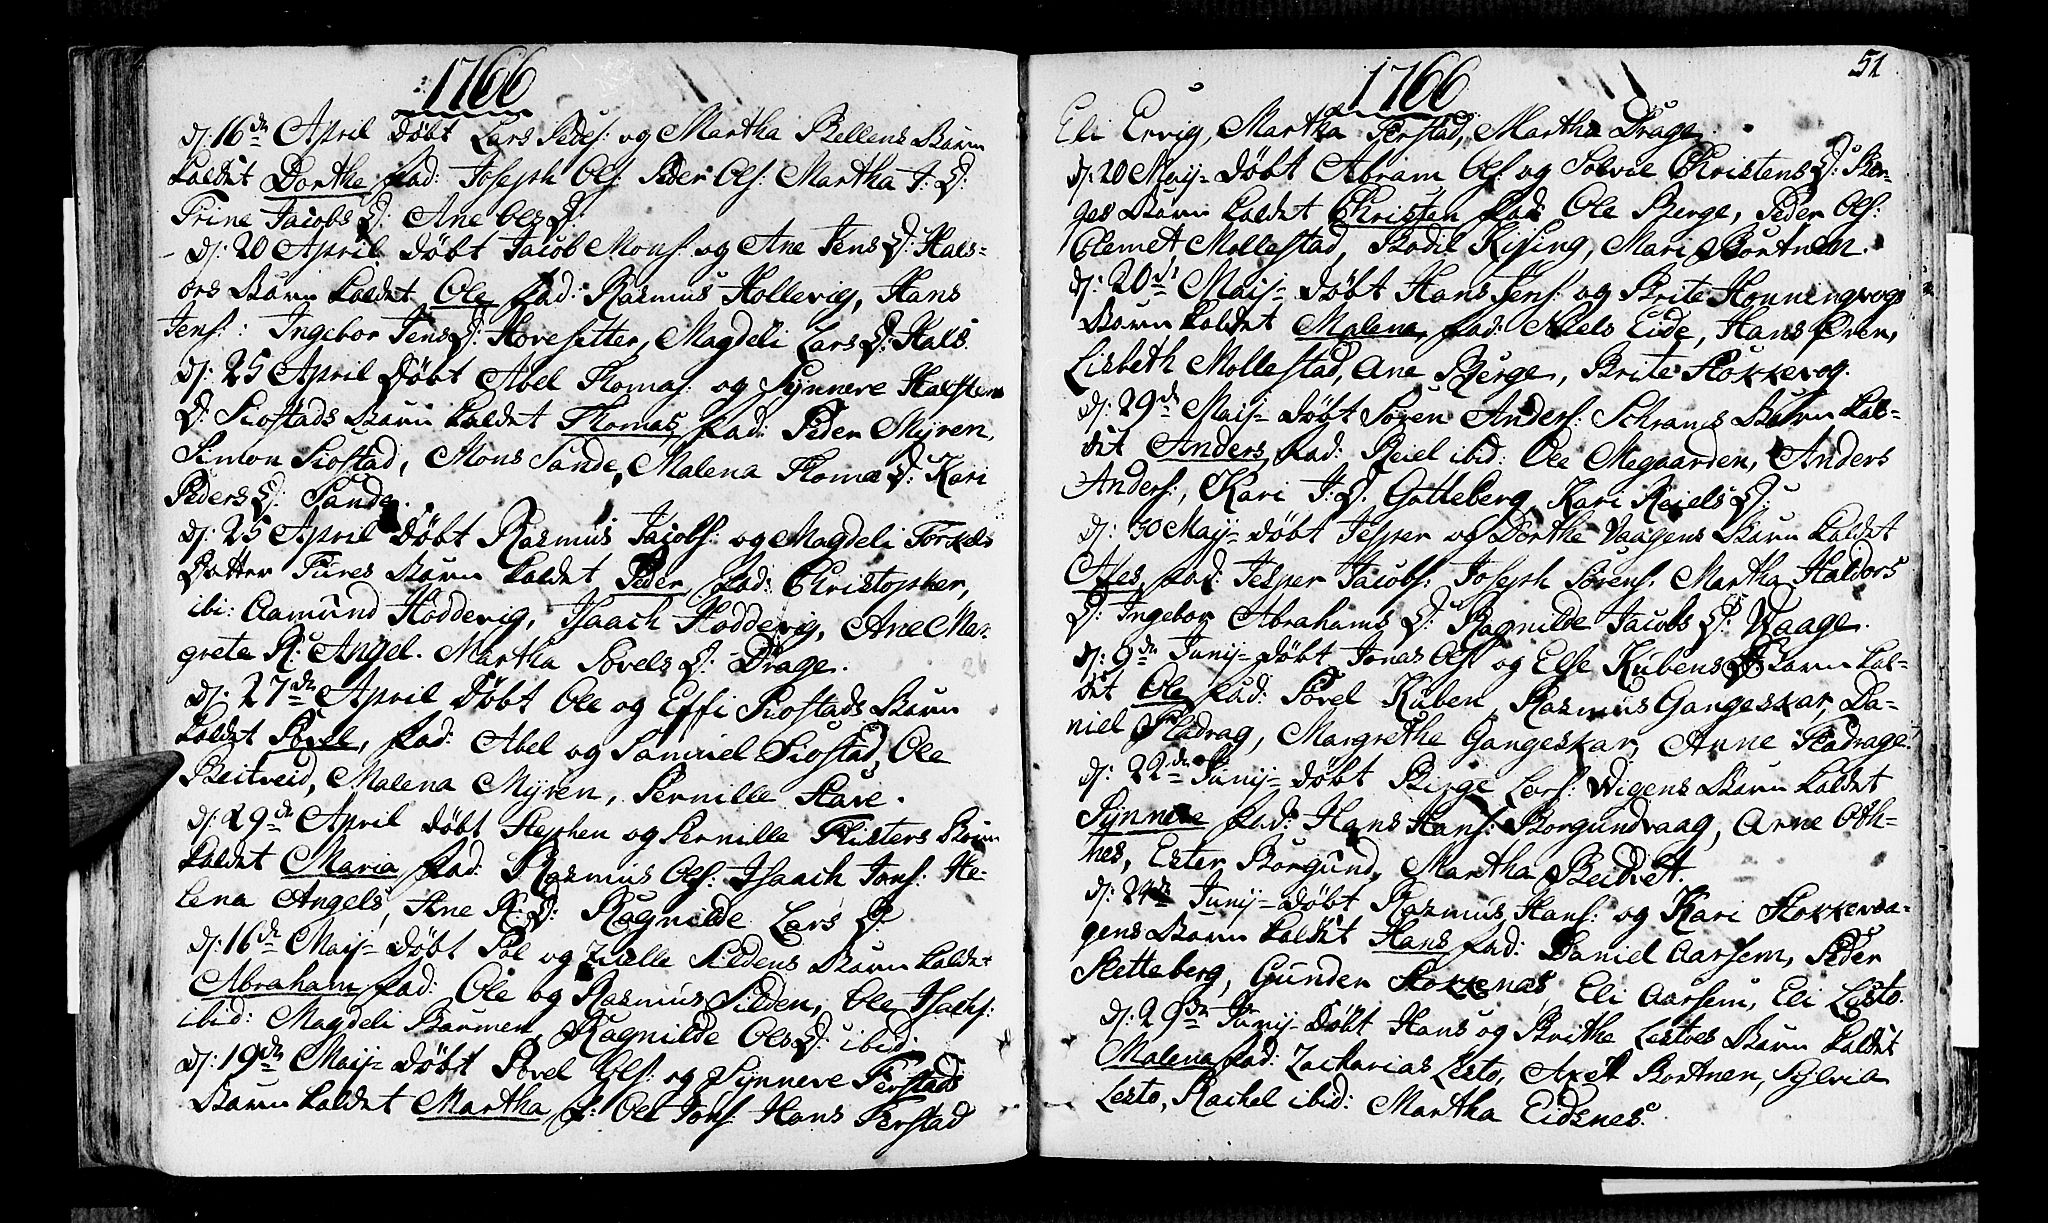 1766
d: 16de April Døbt Lars Peders: og Martha Bellens Barn
kaldet Dorthe fad: Joseph Ols: Peder Ols: Martha J: D:
Trine Jacobs D: Ane Ols D:
d: 20 April døbt Jacob Mons: og Ane Jens D: Hals-
ørs Barn kaldet Ole fad: Rasmus Hollevig, Hans
Jens: Ingebor Jens D: Hovesetter, Magdeli Lars D: Hals
d: 25 April Døbt Abel Thomas: og Synneve Halsten
D: Siostads Barn kaldet Thomas, fad: Peder Myren,
Simon Siostad, Mons Sande, Malena Thomæ D: Kari
Peders D: Sande.
d: 25 April Døbt Rasmus Jacobs: og Magdeli Torkels
Datter Fures Barn kaldet Peder fad: Christopher,
ibi: Aamund Hoddevig, Isaach Hoddevig, Ane Mar-
grete R: Angel. Martha Povels D: Drage.
d: 27de April Døbt Ole og Effi Siostads Barn
kaldet Povel, fad: Abel og Samuel Siostad, Ole
Beitveid, Malena Myren, Pernille Hare.
d: 29de April døbt Stephen og Pernille Flisters Barn
kaldet Maria fad: Rasmus Ols: Isaach Jons: He-
lena Angels, Ane R: D: Ragnilde Lars D:
d: 16de Maij- Døbt Pol og Sildens Barn kaldet
Abraham fad: Ole og Rasmus Silden, Ole Isachs:
ibid: Magdeli Barmen, Ragnilde Ols D: ibid:
d: 19de Maij- døbt Povel Ols: og Synneve Ferstads
Barn kaldet Martha, f: Ole Jons: Hans Ferstad
1766
51
Eli Ervig, Martha Ferstad, Martha Drage.
d: 20 Maij- Døbt Abram Ols: og Solvie Christens D: Ber-
ges Barn kaldet Christen fad: Ole Berge, Peder Ols:
Clemet Mollestad, Bodil Kising, Mari Bortnen.
d: 20de Maij- Døbt Hans Jens: og Brite Honningvogs
Barn kaldet Malena, fad: Niels Eide, Hans Øren,
Lisbeth Mollestad, Ane Berge, Brite Stokkevog.
d: 29de Maij- Døbt Søren Anders: Schrams Barn kal-
det Anders, fad: Reiel ibid: Ole Megaarden, Anders
Anders:, Kari J: D: Gotteberg, Kari Reiels D:
d: 30 Maij- døbt Jesper og Dorthe Vaagens Barn kaldet
Ales, fad: Jesper Jacobs: Joseph Sørens. Martha Haldors
D: Ingebor Abrahams D: Ragnilde Jacobs D: Vaage.
d: 9de Junij- døbt Jonas Ols: og Else Rubens D: Barn kal-
det Ole fad: Povel Ruben, Rasmus Gangeskar, Da-
niel Fladrag, Margrethe Gangeskar, Anne Fladrage.
d: 22de Junij- døbt Birge Lars: Wigens Barn kaldet
Synneve fad: Hans Hans: Borgundvaag, Arne Oth-
nes, Ester Borgund, Martha Beidvet.
d: 24de Junij- døbt Rasmus Hans: og Kari Stokkevaa-
gens Barn kaldet Hans fad: Daniel Aarsem, Peder
Sletteberg, Gunder Stokkenas, Eli Aarsem, Eli Lesto.
d: 29de Junij- Døbt Hans og Brithe Lestoes Barn kaldet
Malena fad: Zacharias Lesto, Axel Bortnen, Sylvia
Lesto, Rachel ibid: Martha Eidsnes.